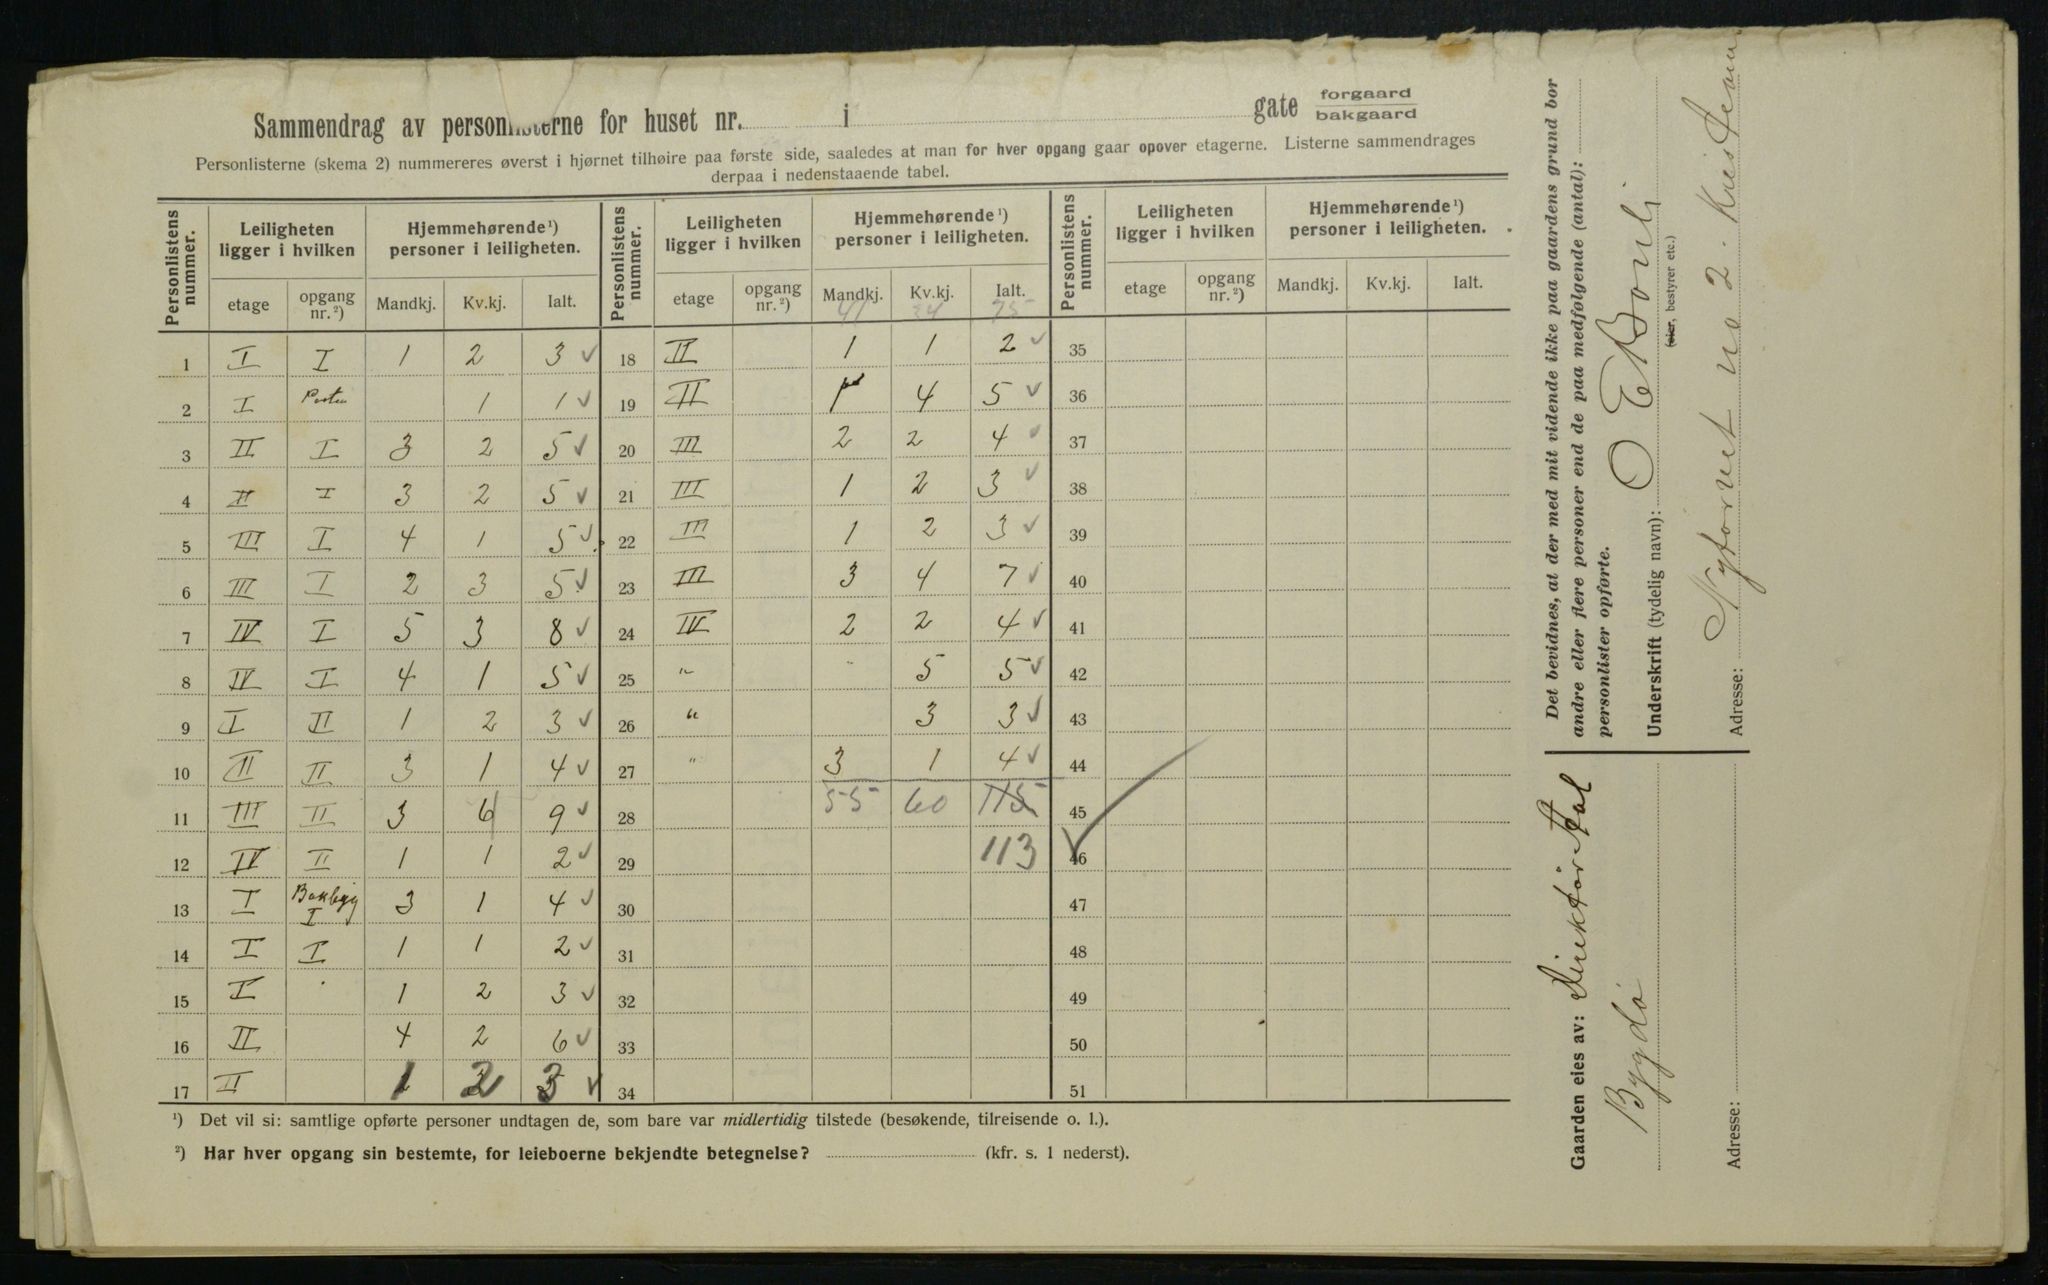 Sammendrag av personlisterne for huset nr. i gate forgaard bakgaard
Personlisterne (skema 2) nummereres øverst i hjørnet tilhøire paa første side, saaledes at man for hver opgang gaar opover etagerne. Listerne sammendrages
derpaa i nedenstaaende tabel.
Personlistens nummer. Leiligheten ligger i hvilken Hjemmehørende ¹) personer i leiligheten. Personlistens nummer. Leiligheten ligger i hvilken Hjemmehørende ¹) personer i leiligheten. Personlistens nummer. Leiligheten ligger i hvilken Hjemmehørende ¹) personer i leiligheten.
etage opgang nr. ²) Mandkj. Kv.kj. Ialt. etage opgang nr. ²) Mandkj. Kv.kj. Ialt. etage opgang nr. ²) Mandkj. Kv.kj. Ialt.
41 34 75
1 I I 1 2 3 ✓ 18 II 1 1 2 ✓ 35
2 I 1 1 ✓ 19 II 1 4 5 ✓ 36
3 II I 3 2 5 ✓ 20 III 2 2 4 ✓ 37
4 II I 3 2 5 ✓ 21 III 1 2 3 ✓ 38
5 III I 4 1 5 ✓ 22 III 1 2 3 ✓ 39
6 III I 2 3 5 ✓ 23 III 3 4 7 ✓ 40
7 IV I 5 3 8 ✓ 24 IV 2 2 4 ✓ 41
8 IV I 4 1 5 ✓ 25 " 5 5 ✓ 42
9 I II 1 2 3 ✓ 26 " 3 3 ✓ 43
10 II II 3 1 4 ✓ 27 " 3 1 4 ✓ 44
11 III II 3 6 9 ✓ 28 55 60 115 45
12 IV II 1 1 2 ✓ 29 113 ✓ 46
13 I Bakbyg I 3 1 4 ✓ 30 47
14 I I 1 1 2 ✓ 31 48
15 I 1 2 3 ✓ 32 49
16 II 4 2 6 ✓ 33 50
17 II 1 2 3 ✓ 34 51
¹) Det vil si: samtlige opførte personer undtagen de, som bare var midlertidig tilstede (besøkende, tilreisende o. l.).
²) Har hver opgang sin bestemte, for leieboerne bekjendte betegnelse? (kfr. s. 1 nederst).
Det bevidnes, at der med mit vidende ikke paa gaardens grund bor
andre eller flere personer end de paa medfølgende (antal):
personlister opførte.
Underskrift (tydelig navn): O E Bonli
(eier, bestyrer etc.)
Adresse: Nytorvet no 2. Kristiania
Gaarden eies av: Direktør
Bygdø
Adresse: